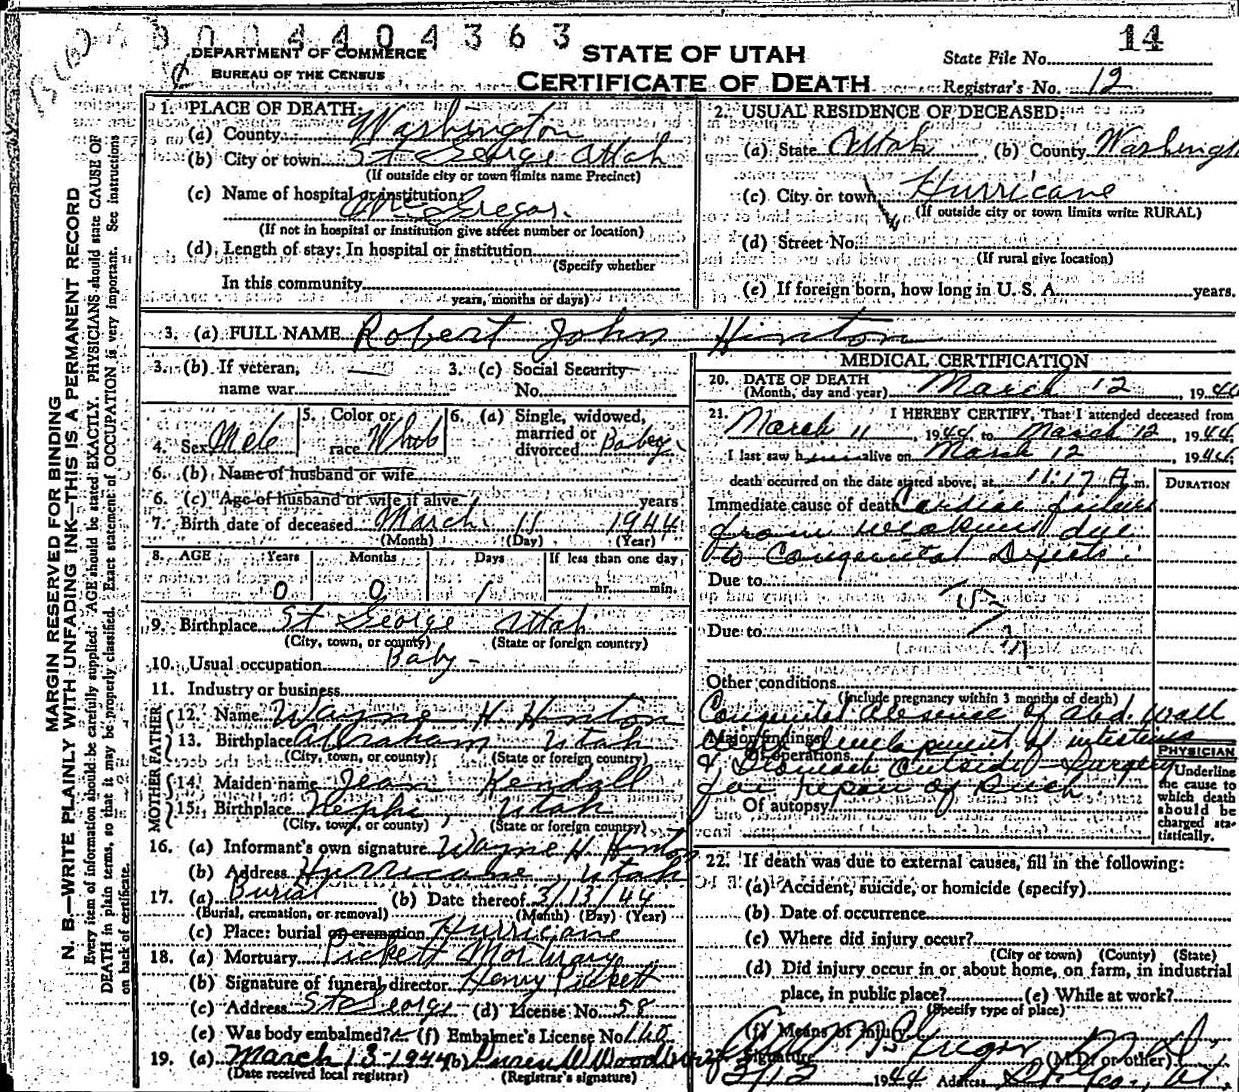 3 0 0 4 4 0 4 3 6 3
14
DEPARTMENT OF COMMERCE
BUREAU OF THE CENSUS
STATE OF UTAH
CERTIFICATE OF DEATH
State File No.
Registrar's No. 12
MARGIN RESERVED FOR BINDING
N. B.—WRITE PLAINLY WITH UNFADING INK—THIS IS A PERMANENT RECORD
Every item of information should be carefully supplied. AGE should be stated EXACTLY. PHYSICIANS should state CAUSE OF
DEATH in plain terms, so that it may be properly classified. Exact statement of OCCUPATION is very important. See instructions
on back of certificate.
1. PLACE OF DEATH:
(a) County Washington
(b) City or town St George Utah
(If outside city or town limits name Precinct)
(c) Name of hospital or institution:
McGregor
(If not in hospital or institution give street number or location)
(d) Length of stay: In hospital or institution
(Specify whether
In this community
years, months or days)
2. USUAL RESIDENCE OF DECEASED:
(a) State Utah (b) County Washingt
(c) City or town Hurricane
(If outside city or town limits write RURAL)
(d) Street No.
(If rural give location)
(e) If foreign born, how long in U. S. A. years.
3. (a) FULL NAME Robert John Hinton
3. (b) If veteran,
name war
3. (c) Social Security
No.
4. Sex Male
5. Color or
race
6. (a) Single, widowed,
married or
divorced Baby
6. (b) Name of husband or wife
6. (c) Age of husband or wife if alive years
7. Birth date of deceased March 11 1944
(Month) (Day) (Year)
8. AGE Years Months Days If less than one day
0 0 1 hr. min.
9. Birthplace St George Utah
(City, town, or county) (State or foreign country)
10. Usual occupation Baby
11. Industry or business
FATHER
12. Name Wayne H. Hinton
13. Birthplace Abraham Utah
(City, town, or county) (State or foreign country)
MOTHER
14. Maiden name Jean Kendall
15. Birthplace Nephi, Utah
(City, town, or county) (State or foreign country)
16. (a) Informant's own signature Wayne H. Hinton
(b) Address Hurricane, Utah
17. (a) Burial (b) Date thereof 3/13/44
(Burial, cremation, or removal) (Month) (Day) (Year)
(c) Place: burial or cremation Hurricane
18. (a) Mortuary Pickett Mortuary
(b) Signature of funeral director Henry Pickett
(c) Address St George (d) License No. 58
(e) Was body embalmed? (f) Embalmer's License No. 160
19. (a) March 13-1944 (b)
(Date received local registrar) (Registrar's signature)
MEDICAL CERTIFICATION
20. DATE OF DEATH
(Month, day and year) March 12, 1944
21. I HEREBY CERTIFY, That I attended deceased from
March 11, 1944, to March 12, 1944
I last saw h alive on March 12 1944
death occurred on the date stated above, at 11:17 A m.
DURATION
Immediate cause of death Cardiac failure
from weakness due
to Congenital Defects
Due to
Due to
Other conditions
(Include pregnancy within 3 months of death)
Congenital absence of abd. wall
Major findings:
with development of intestines
Of operations
& Stomach outside - Surgery
for repair of
Of autopsy
PHYSICIAN
Underline
the cause to
which death
should be
charged sta-
tistically.
22. If death was due to external causes, fill in the following:
(a) Accident, suicide, or homicide (specify)
(b) Date of occurrence
(c) Where did injury occur?
(City or town) (County) (State)
(d) Did injury occur in or about home, on farm, in industrial
place, in public place? (e) While at work?
(Specify type of place)
(f) Means of injury
23. Signature McGregor M.D. (M.D. or other)
3/12 1944 Address